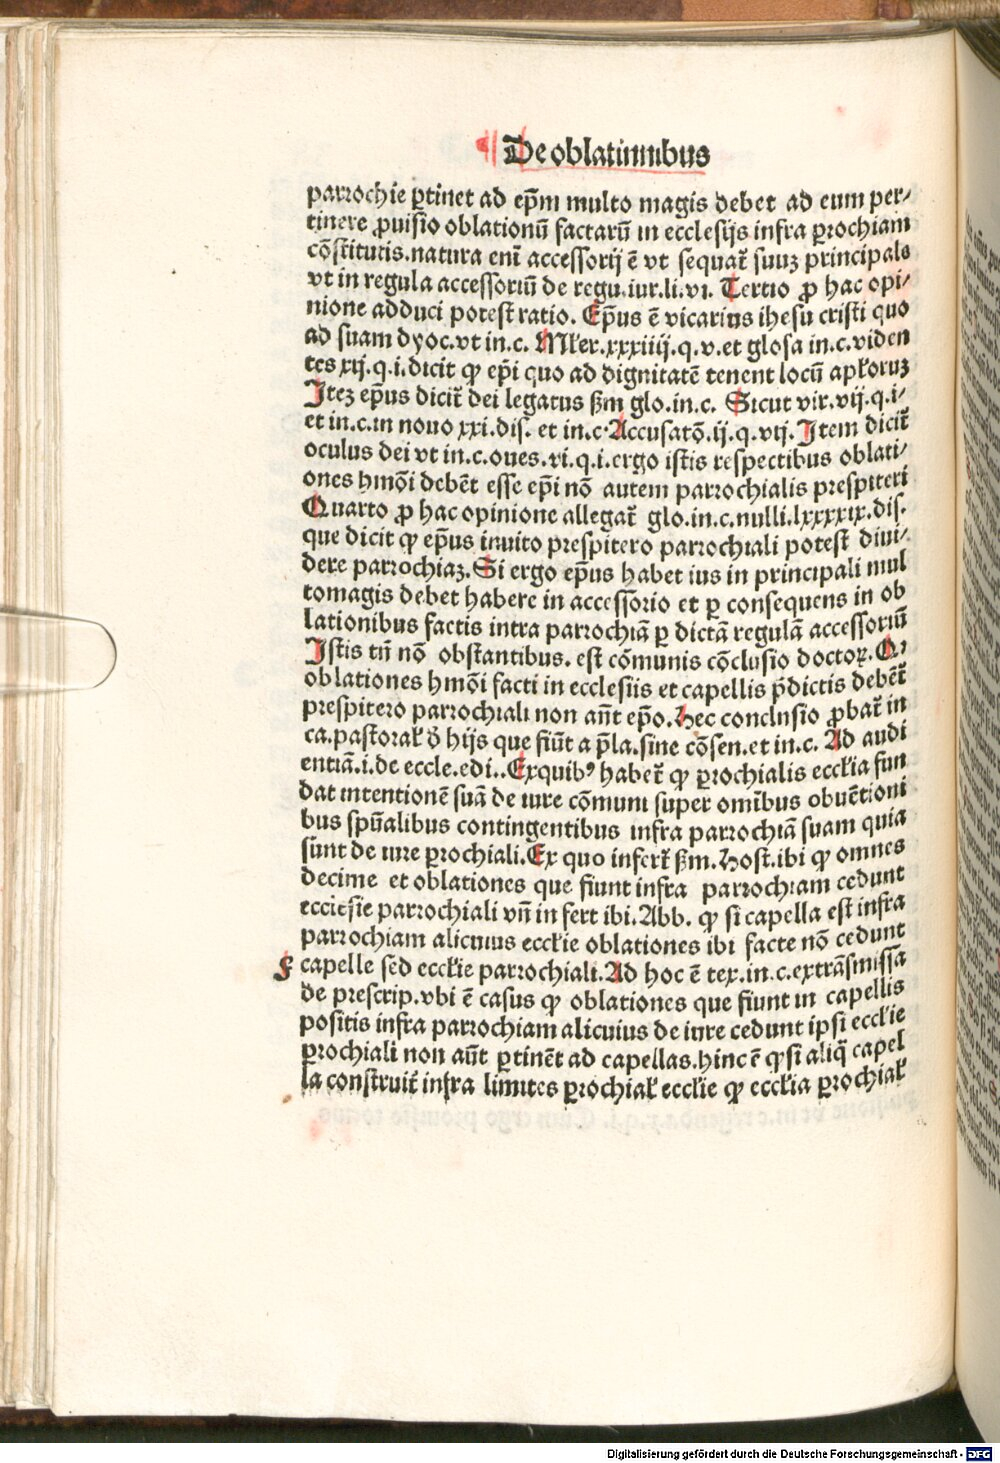 De oblatinnibus
parrochie ꝑtinet ad ep̄m multo magis debet ad eum per⸗
tinere ꝓuisio oblationū factarū in ecclesijs infra ꝑrochiam
cōstitutis.natura enī accessorij ē vt sequat̄ suuꝫ principals
vt in regula accessoriū de regu.iur.li.vi. Tertio ꝓ hac opi⸗
nione adduci potest ratio. Ep̄us ē vicarius ihesu cristi quo
ad suam dyoc.vt in.c. Ml̄er.xxxiiij.q.v.et glosa in.c.viden
tes xij.q.i.dicit ꝙ ep̄i quo ad dignitatē tenent locū apl̄oruꝫ
Iteꝫ ep̄us dicit̄ dei legatus ẜm glo.in.c. Sicut vir.vij.q.i⸗
et in.c.in nouo xxi.dis. et in.c.Accusatō.ij.q.vij.Item dicit̄
oculus dei vt in.c.oues.vi.q.i.ergo istis respectibus oblati⸗
ones hmōi debēt esse ep̄i nō autem parrochialis prespiteri
Quarto ꝓ hac opinione allegat̄ glo.in.c.nulli.lxxxxix.dis.
que dicit ꝙ ep̄us inuito prespitero parrochiali potest diui⸗
dere parrochiaꝫ.Si ergo ep̄us habet ius in principali mul
tomagis debet habere in accessorio et ꝑ consequens in ob
lationibus factis intra parrochiā ꝑ dictā regulā accessoriū
Istis tn̄ nō obstantibus. est cōmunis cōclusio doctoꝝ.Qꝰ
oblationes hmōi facti in ecclesiis et capellis p̄dictis debēt̄
prespitero parrochiali non aūt ep̄o.Hec conclnsio ꝓbat̄ in
ca.pastoral̄ ꝟ hijs que fiūt a p̄la.sine cōsen.et in.c. Ad audi
entiā.i.de eccle.edi..Exquibꝰ habet̄ ꝙ ꝑrochialis eccl̄ia fun
dat intentionē suā de iure cōmuni super omībus obuētioni
bus spūalibus contingentibus infra parrochiā suam quia
sunt de iure ꝑrochiali.Ex quo infert̄ ẜm.Host.ibi ꝙ omnes
decime et oblationes que fiunt infra parrochiam cedunt
ecclesie parrochiali vn̄ in fert ibi.Abb. ꝙ si capella est infra
parrochiam alicuius eccl̄ie oblationes ibi facte nō cedunt
F capelle sed eccl̄ie parrochiali.Ad hoc ē tex.in.c.extrāsmissa
de prescrip.vbi ē casus ꝙ oblationes que fiunt in capellis
positis infra parrochiam alicuius de iure cedunt ipsi eccl̄ie
ꝑrochiali non aūt ꝑtinēt ad capellas.hinc ē ꝙ si aliq̄ capel
la construit̄ infra limites ꝑrochial̄ eccl̄ie ꝙ eccl̄ia ꝑrochial̄
Digitalisierung gefördert durch die Deutsche Forschungsgemeinschaft - DFG